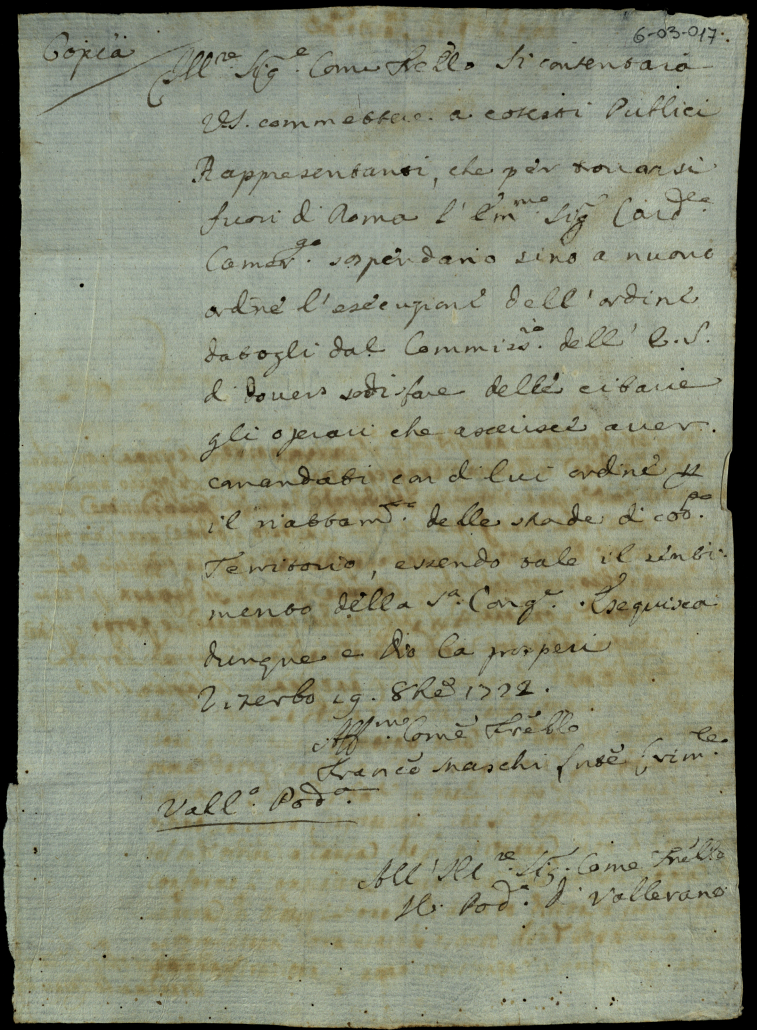 6-03-017.
Copia
Ill.re Sig.e Come Frello Si contentarà
V.S. commettere a cotesti Publici
Rappresentanti, che per trovarsi
fuori di Roma l'Em.mo Sig. Card.le
Camer.go sospendano sino a nuovo
ordine l'esecuzione dell'ordine
datogli dal Commiss.rio dell' E.S.
di dover sodisfare delle cibarie
gli operari che asserisce aver
comandati con di lui ordine p
il riattam.to delle strade di cod.o
Territorio, essendo tale il senti-
mento della S.a Cong.e. Eseguisca
dunque e Dio la prosperi
Viterbo 19. 8bre 1772.
Aff.mo Come Frello
Franc.o Maschi Crim.le
Vall.o Pod.a
All' Ill.re Sig. Come Frello
Il Pod.a di Vallerano